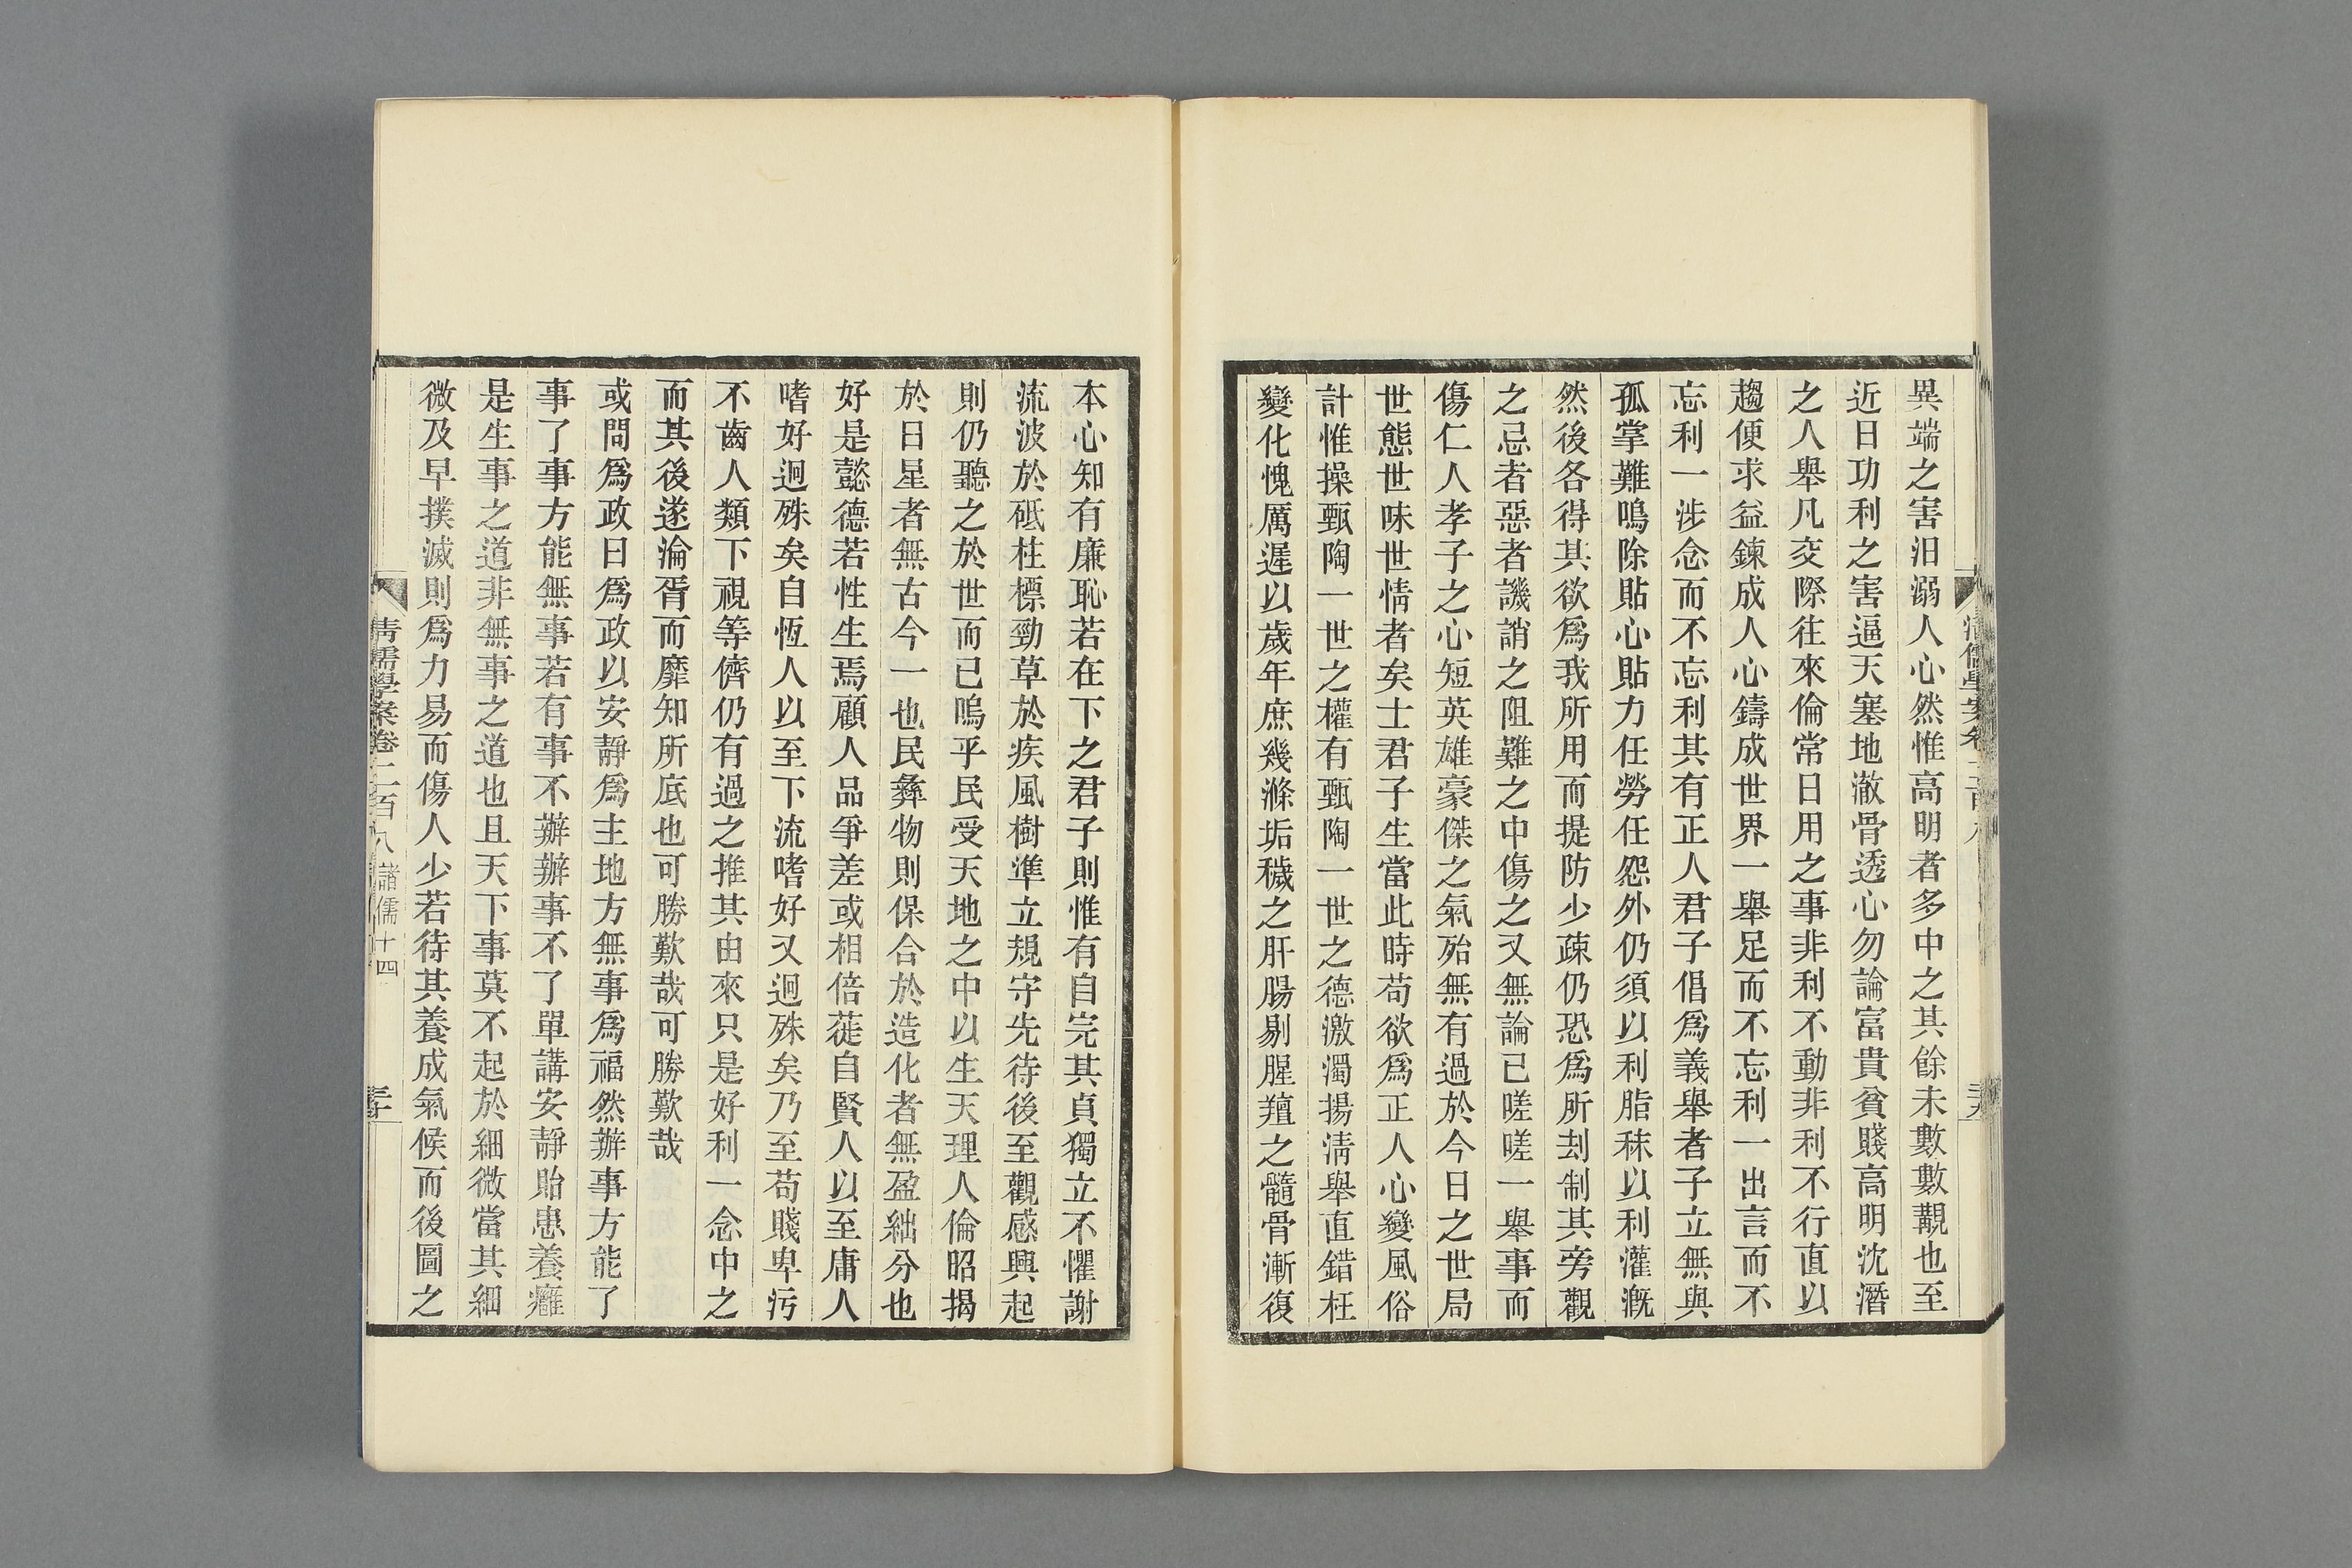 異端之害汨溺人心然惟高明者多中之其餘未數數覯也至
近日功利之害逼天塞地澈骨透心勿論富貴貧賤高明沈潛
之人舉凡交際往來倫常日用之事非利不動非利不行直以
趨便求益鍊成人心鑄成世界一舉足而不忘利一出言而不
忘利一涉念而不忘利其有正人君子倡爲義舉者孑立無與
孤掌難鳴除貼心貼力任勞任怨外仍須以利脂秣以利灌漑
然後各得其欲爲我所用而提防少疎仍恐爲所刦制其旁觀
之忌者惡者譏誚之阻難之中傷之又無論已嗟嗟一舉事而
傷仁人孝子之心短英雄豪傑之氣殆無有過於今日之世局
世態世味世情者矣士君子生當此時苟欲爲正人心變風俗
計惟操甄陶一世之權有甄陶一世之德激濁揚淸舉直錯枉
變化愧厲遲以歲年庶幾滌垢穢之肝腸剔腥羶之髓骨漸復
本心知有廉恥若在下之君子則惟有自完其貞獨立不懼謝
流波於砥柱標勁草於疾風樹準立規守先待後至觀感興起
則仍聽之於世而已嗚乎民受天地之中以生天理人倫昭揭
於日星者無古今一也民彝物則保合於造化者無盈絀分也
好是懿德若性生焉顧人品爭差或相倍蓰自賢人以至庸人
嗜好迥殊矣自恆人以至下流嗜好又迥殊矣乃至苟賤卑污
不齒人類下視等儕仍有過之推其由來只是好利一念中之
而其後遂淪胥而靡知所底也可勝歎哉可勝歎哉
或問爲政曰爲政以安靜爲主地方無事爲福然辦事方能了
事了事方能無事若有事不辦辦事不了單講安靜貽患養癰
是生事之道非無事之道也且天下事莫不起於細微當其細
微及早撲滅則爲力易而傷人少若待其養成氣候而後圖之
淸儒學案卷二百八 諸儒十四